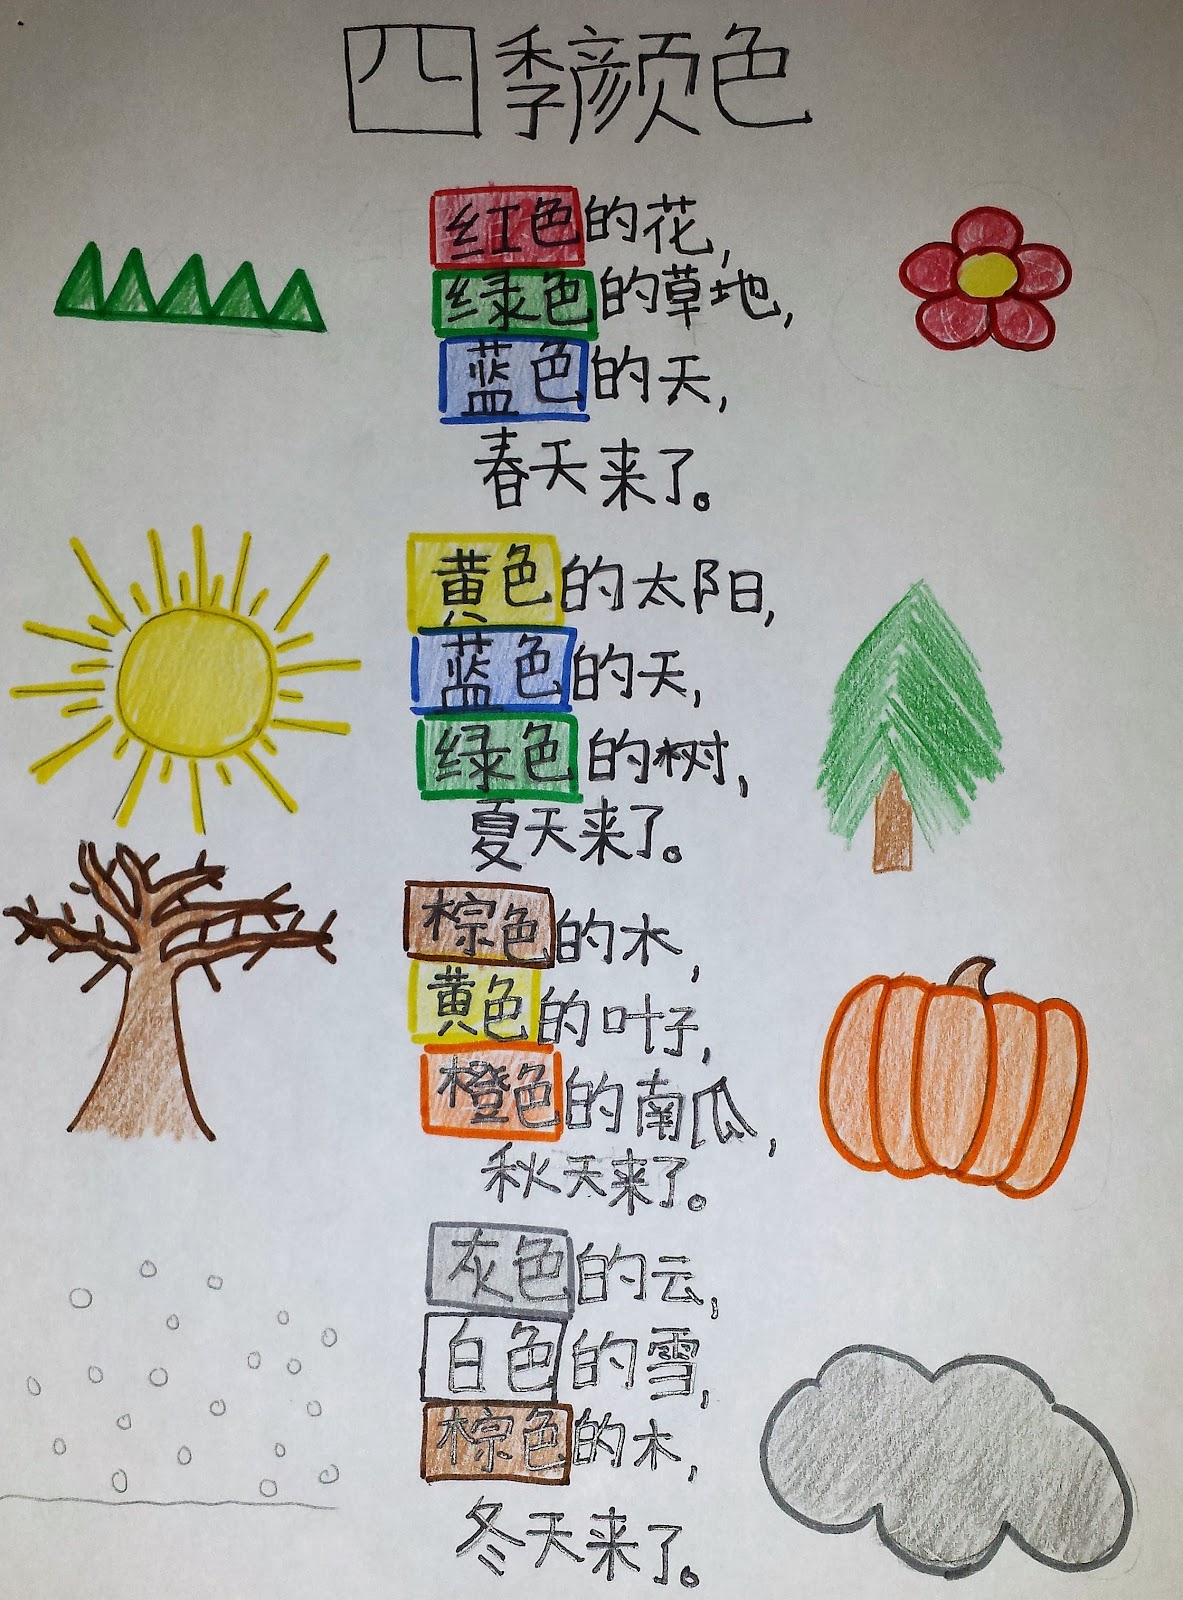 四季颜色
红色的花,
绿色的草地,
蓝色的天,
春天来了。
黄色的太阳,
蓝色的天,
绿色的树,
夏天来了。
棕色的木,
黄色的叶子,
橙色的南瓜,
秋天来了。
灰色的云,
白色的雪,
棕色的木,
冬天来了。